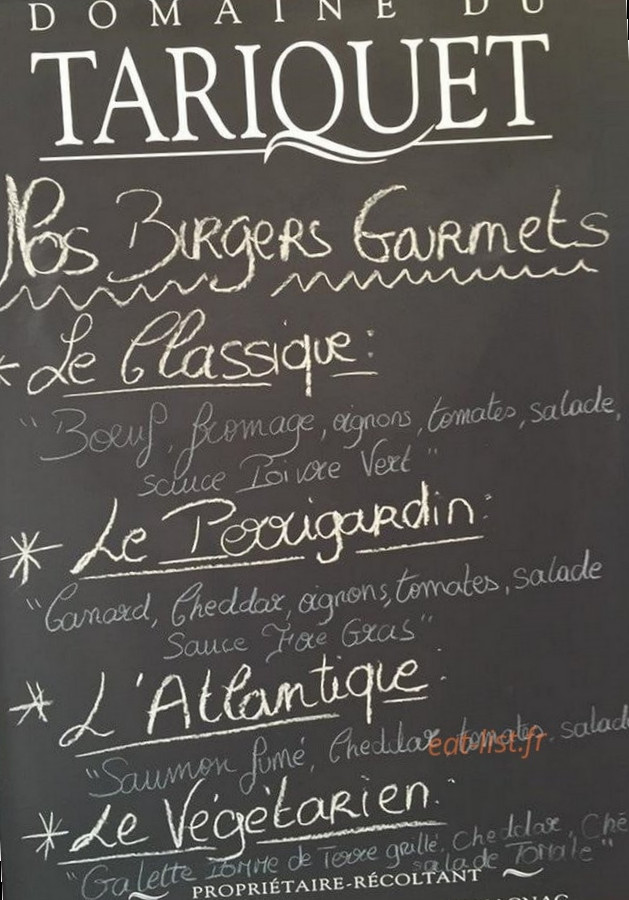 DOMAINE DU
TARIQUET
Nos Burgers Gourmets
* Le Classique:
"Boeuf, fromage, oignons, tomates, salade,
sauce Poivre Vert"
* Le Perrigardin:
"Canard, Cheddar, oignons, tomates, salade
Sauce Foie Gras"
* L'Atlantique:
"Saumon fumé, Cheddar, tomates, salade
eat-list.fr
* Le Végétarien:
"Galette Pomme de Terre grillé, Cheddar,
salade Tomate"
PROPRIÉTAIRE-RÉCOLTANT